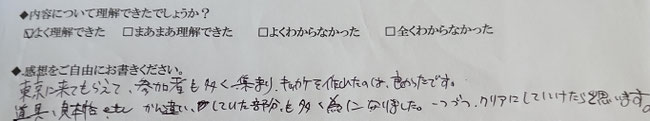 ◆内容について理解できたでしょうか？
☑よく理解できた □まあまあ理解できた □よくわからなかった □全くわからなかった
◆感想をご自由にお書きください。
東京に来てもらえて、参加者も多く集まり、キッカケを作れたのは、良かったです。
道具、見本帖etc かん違いしていた部分も多く為になりました。一つづつ、クリアにしていけたらと思います。